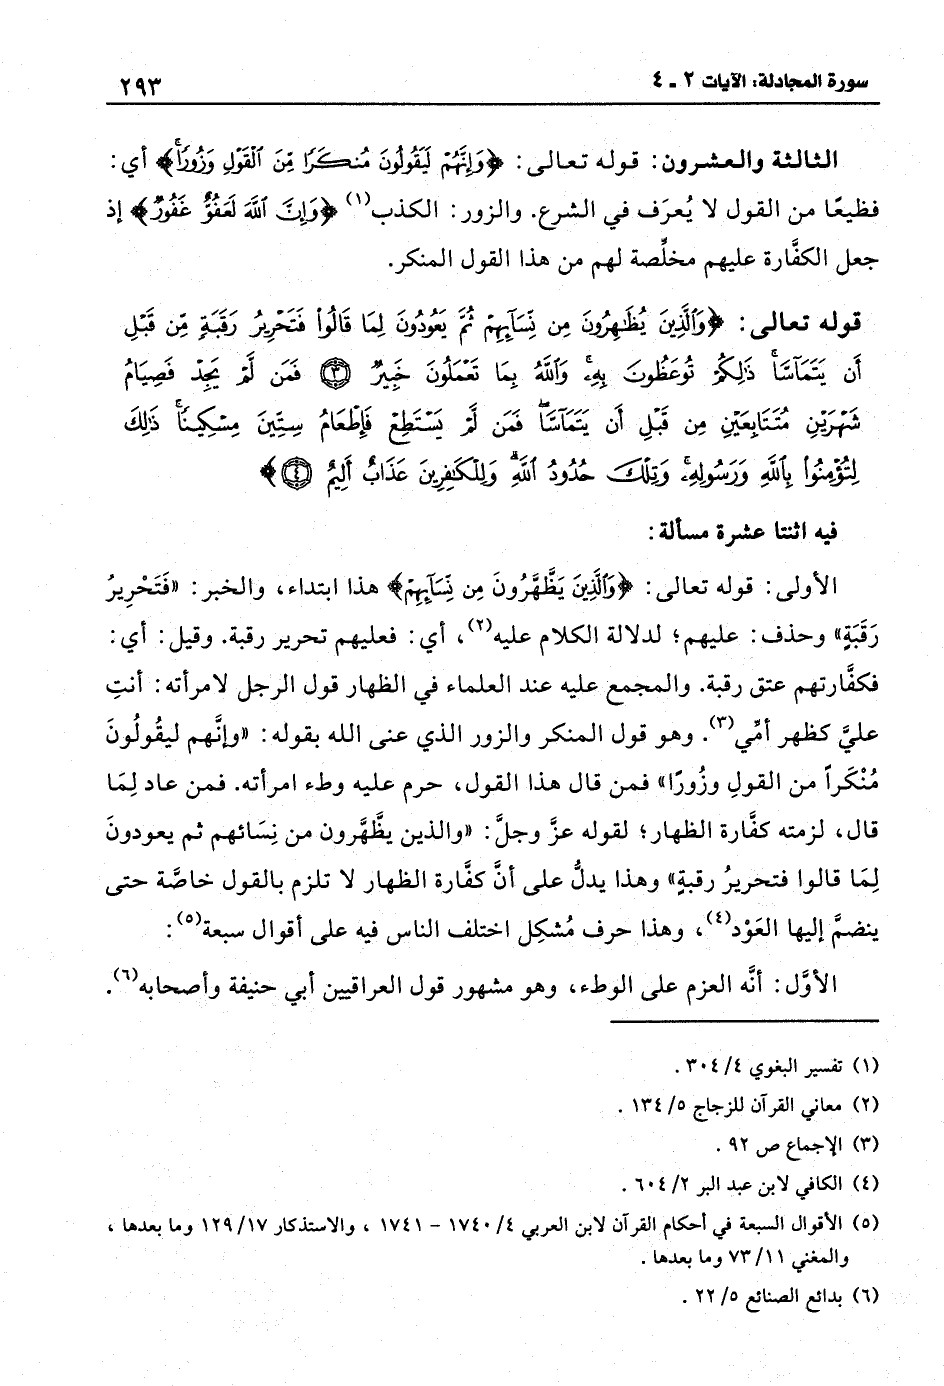 سورة المجادلة: الآيات ٢ ـ ٤
٢٩٣
الثالثة والعشرون: قوله تعالى: ﴿وَإِنَّهُمْ لَيَقُولُونَ مُنكَرًا مِّنَ ٱلْقَوْلِ وَزُورًا﴾ أي:
فظيعًا من القول لا يُعرَف في الشرع. والزور: الكذب(١) ﴿وَإِنَّ ٱللَّهَ لَعَفُوٌّ غَفُورٌ﴾ إذ
جعل الكفَّارة عليهم مخلِّصة لهم من هذا القول المنكر.
قوله تعالى: ﴿وَٱلَّذِينَ يُظَٰهِرُونَ مِن نِّسَآئِهِمْ ثُمَّ يَعُودُونَ لِمَا قَالُوا۟ فَتَحْرِيرُ رَقَبَةٍ مِّن قَبْلِ
أَن يَتَمَآسَّا ۚ ذَٰلِكُمْ تُوعَظُونَ بِهِۦ ۚ وَٱللَّهُ بِمَا تَعْمَلُونَ خَبِيرٌ ۝٣ فَمَن لَّمْ يَجِدْ فَصِيَامُ
شَهْرَيْنِ مُتَتَابِعَيْنِ مِن قَبْلِ أَن يَتَمَآسَّا ۖ فَمَن لَّمْ يَسْتَطِعْ فَإِطْعَامُ سِتِّينَ مِسْكِينًا ۚ ذَٰلِكَ
لِتُؤْمِنُوا۟ بِٱللَّهِ وَرَسُولِهِۦ ۚ وَتِلْكَ حُدُودُ ٱللَّهِ ۗ وَلِلْكَٰفِرِينَ عَذَابٌ أَلِيمٌ ۝٤﴾
فيه اثنتا عشرة مسألة:
الأولى: قوله تعالى: ﴿وَٱلَّذِينَ يَظَّهَّرُونَ مِن نِّسَآئِهِمْ﴾ هذا ابتداء، والخبر: «فَتَحْرِيرُ
رَقَبَةٍ» وحذف: عليهم؛ لدلالة الكلام عليه(٢)، أي: فعليهم تحرير رقبة. وقيل: أي:
فكفَّارتهم عتق رقبة. والمجمع عليه عند العلماء في الظهار قول الرجل لامرأته: أنتِ
عليَّ كظهر أمِّي(٣). وهو قول المنكر والزور الذي عنى الله بقوله: «وإنَّهم ليقُولُونَ
مُنْكَراً من القولِ وزُورًا» فمن قال هذا القول، حرم عليه وطء امرأته. فمن عاد لِمَا
قال، لزمته كفَّارة الظهار؛ لقوله عزَّ وجلَّ: «والذين يظَّهَّرون من نِسَائهم ثم يعودونَ
لِمَا قالوا فتحريرُ رقبةٍ» وهذا يدلُّ على أنَّ كفَّارة الظهار لا تلزم بالقول خاصَّة حتى
ينضمَّ إليها العَوْد(٤)، وهذا حرف مُشكِل اختلف الناس فيه على أقوال سبعة(٥):
الأوَّل: أنَّه العزم على الوطء، وهو مشهور قول العراقيين أبي حنيفة وأصحابه(٦).
(١) تفسير البغوي ٤/ ٣٠٤ .
(٢) معاني القرآن للزجاج ٥/ ١٣٤ .
(٣) الإجماع ص ٩٢ .
(٤) الكافي لابن عبد البر ٢/ ٦٠٤ .
(٥) الأقوال السبعة في أحكام القرآن لابن العربي ٤/ ١٧٤٠ - ١٧٤١ ، والاستذكار ١٧/ ١٢٩ وما بعدها ،
والمغني ١١/ ٧٣ وما بعدها .
(٦) بدائع الصنائع ٥/ ٢٢ .